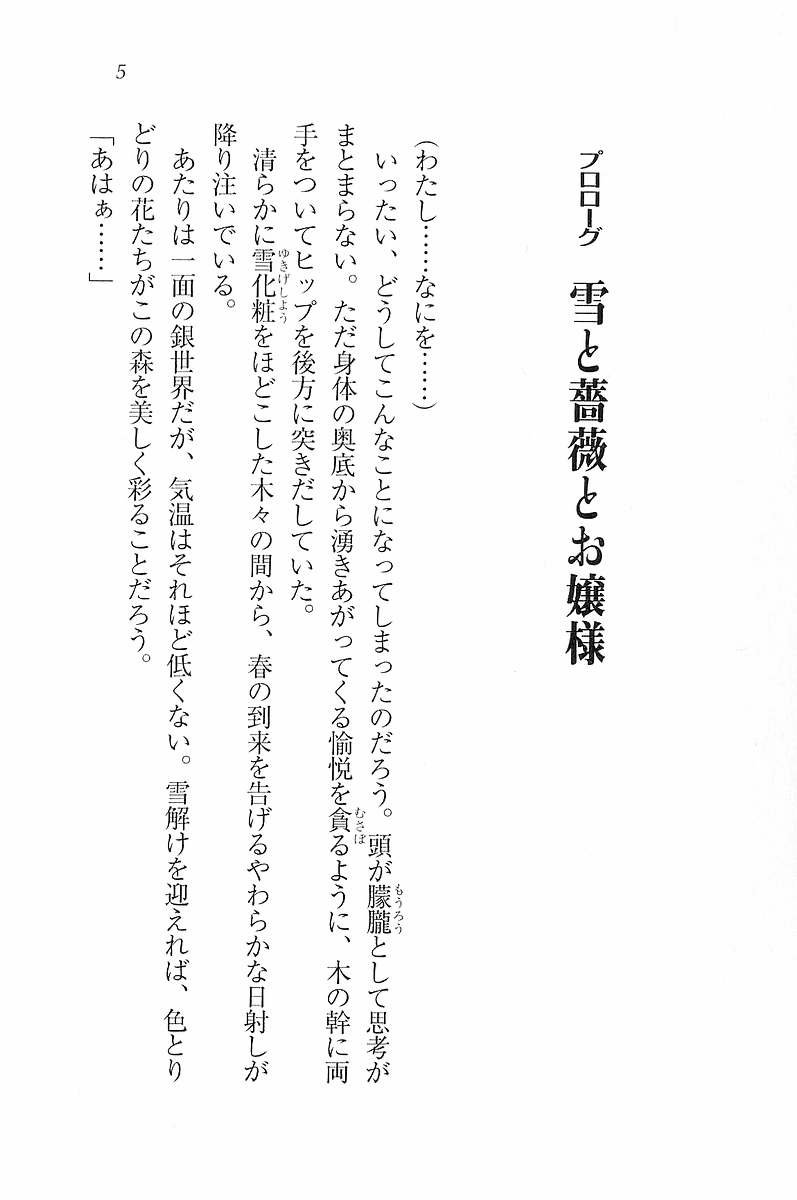 5
プロローグ 雪と薔薇とお嬢様
(わたし……なにを……)
いったい、どうしてこんなことになってしまったのだろう。頭が朦朧として思考が
まとまらない。ただ身体の奥底から湧きあがってくる愉悦を貪るように、木の幹に両
手をついてヒップを後方に突きだしていた。
清らかに雪化粧をほどこした木々の間から、春の到来を告げるやわらかな日射しが
降り注いでいる。
あたりは一面の銀世界だが、気温はそれほど低くない。雪解けを迎えれば、色とり
どりの花たちがこの森を美しく彩ることだろう。
「あはぁ……」
もうろう
むさぼ
ゆきげしよう